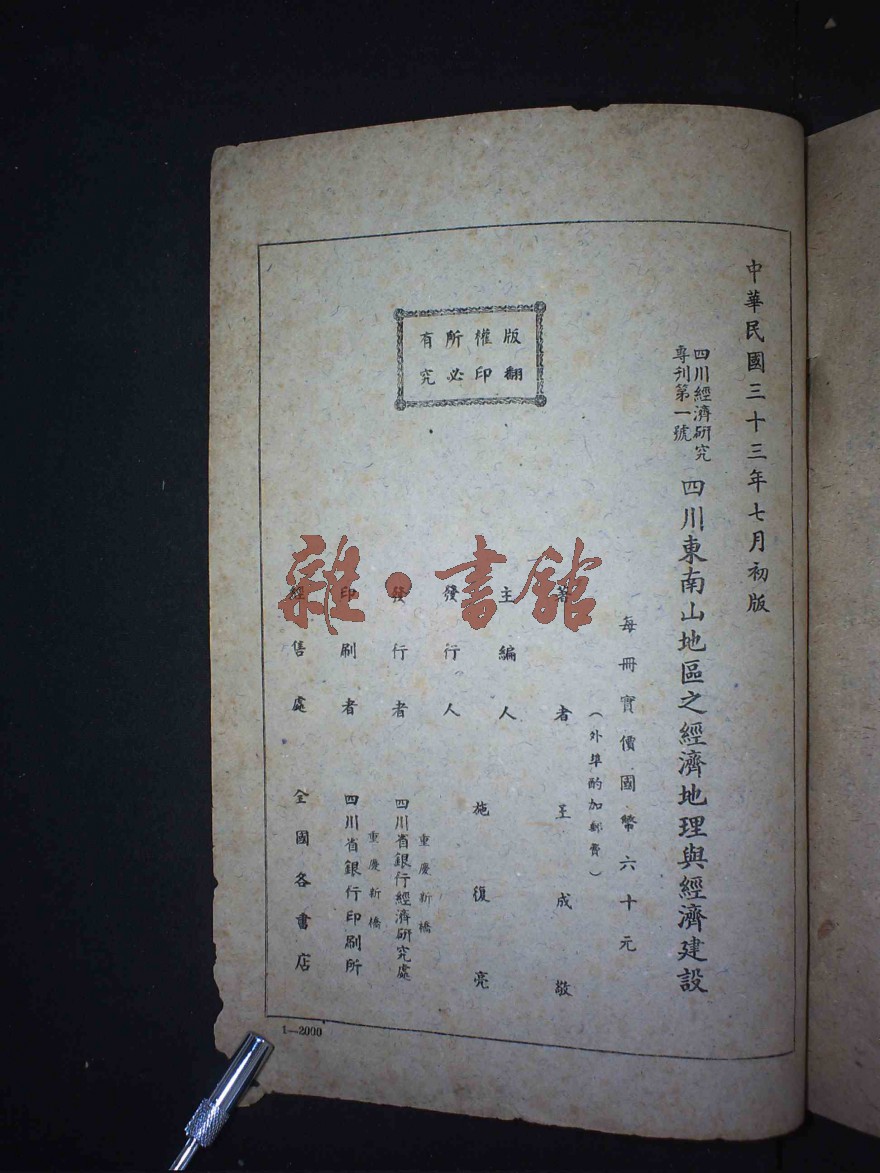 中華民國三十三年七月初版
四川經濟研究
專刊第一號
四川東南山地區之經濟地理與經濟建設
每冊實價國幣六十元
（外埠酌加郵費）
著者王成敬
主編人
發行人
施復亮
重慶新橋
發行者四川省銀行經濟研究處
重慶新橋
印刷者四川省銀行印刷所
經售處全國各書店
版權所有
翻印必究
1—2000
雜·書館